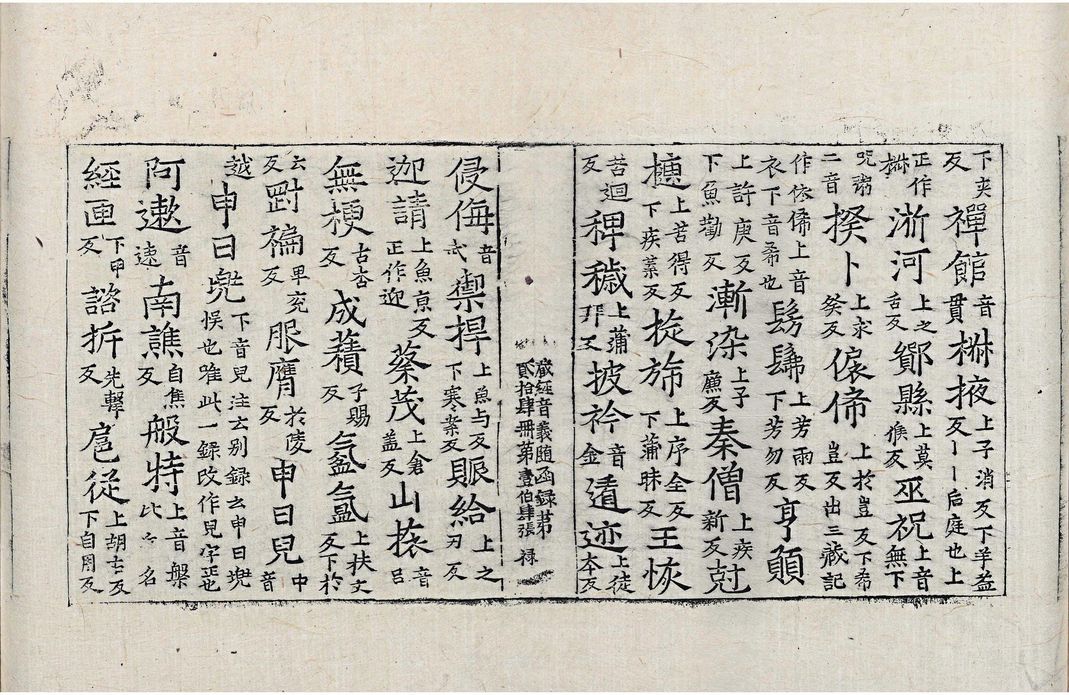 下夾反禪館音貫椒掖上子消反下羊益反丨丨后庭也上
正作椒淅河上之舌反鄮縣上莫候反巫祝上音無下
呪粥二音揆卜上求癸反僾俙上於豈反下希豈反出三藏記
作依俙上音衣下音希也髣髴上芳雨反下芳勿反亨顛
上許庚反下魚勸反漸染上子廉反秦僧上疾新反尅
櫶上苦得反下疾葉反㨀旆上序全反下蒲昧反王恢
苦迴反稗穢上蒲拜反披衿音金遁迹上徒本反
藏經音義隨函録第貳拾肆冊第壹伯肆張 禄
侵侮音武禦捍上魚与反下寒案反賑給上之刃反
迦請上魚京反正作迎蔡茂上倉蓋反山㨱音呂
無梗古杏反成䕆子賜反氛氳上扶文反下於
云反㔁褊卑兖反服膺於陵反申日兒中音
越申日兜下音兒注云别録云申日兜悮也唯此一録改作兒字正也
阿遬音速南譙自焦反般特上音槃比丘名
經匣下甲反諮㧁先擊反扈從上胡古反下自用反